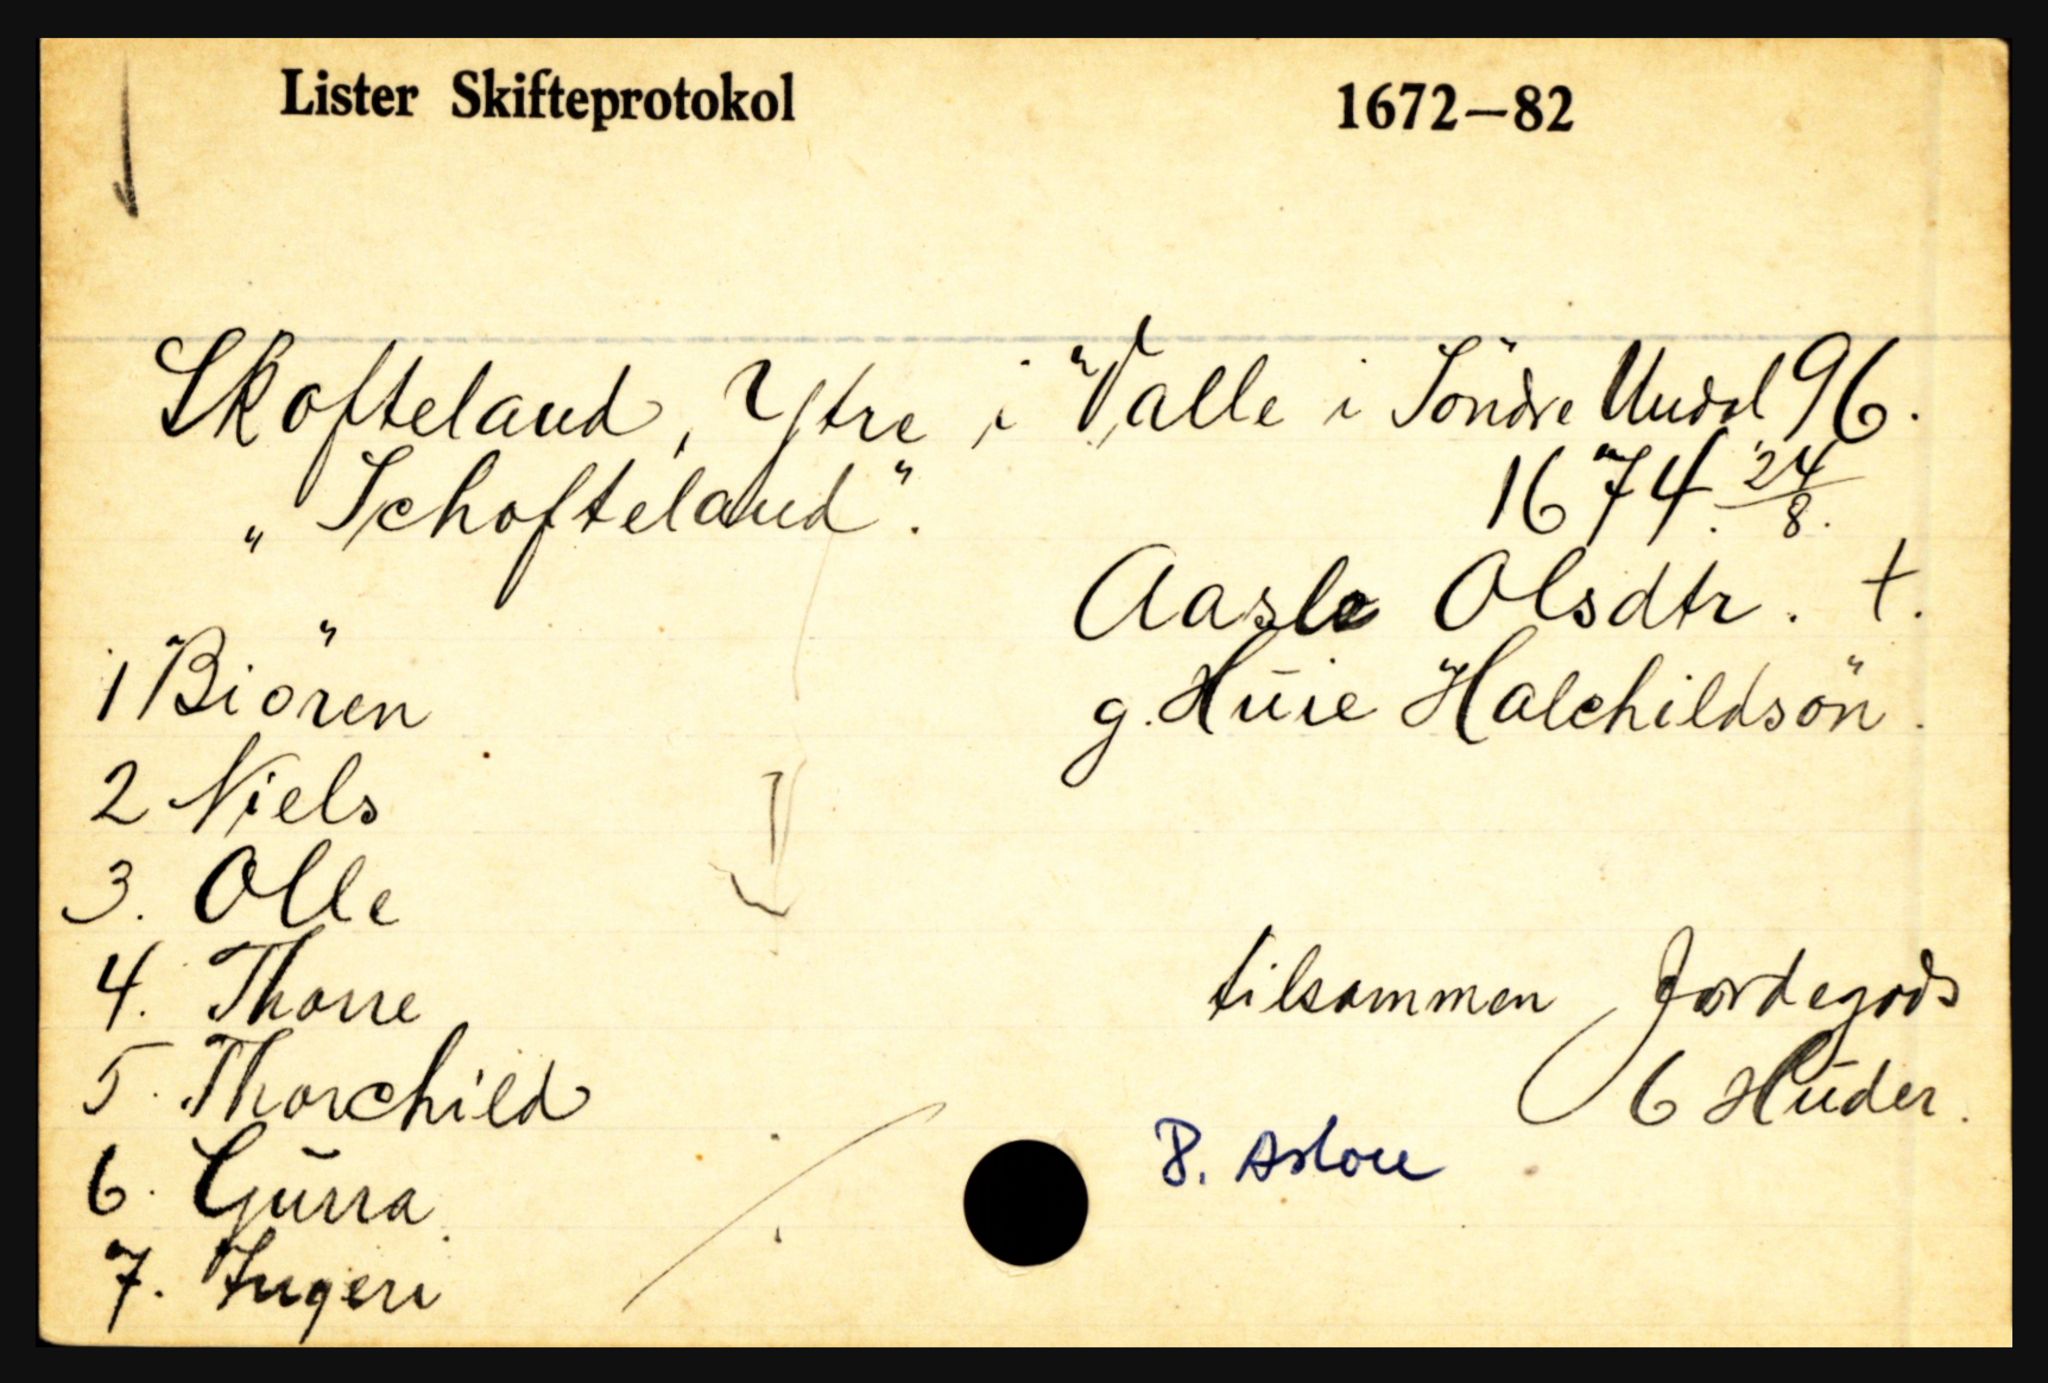 Lister Skifteprotokol 1672–82
Skofteland, Ytre, i Valle i Söndre Undal 96.
„Schofteland". 1674. 24/8.
Aasle Olsdtr. †.
1 Biören g. Huie Halchildsön.
2 Niels
3. Olle
4. Thorre tilsammen Jordegods
5. Thorchild 6 Huder.
6. Gurra. 8. Aslou
7. Ingeri